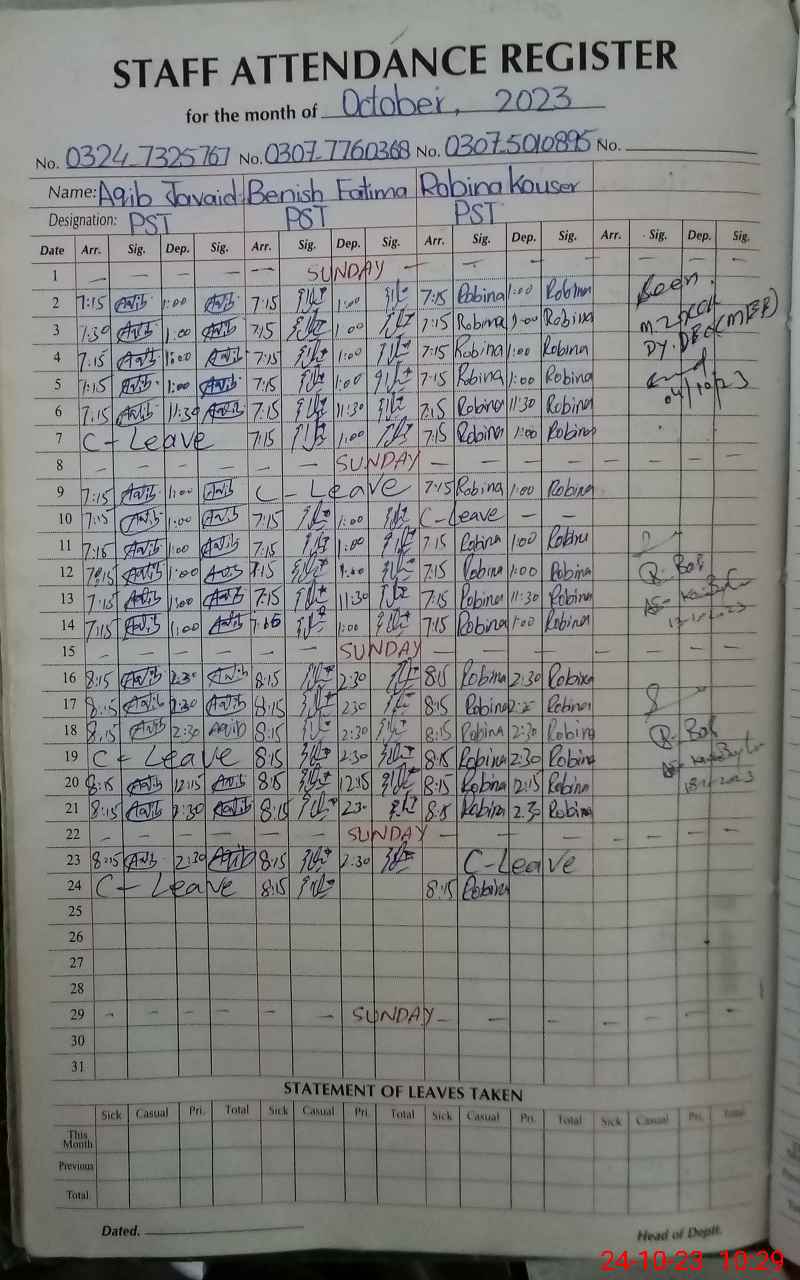 STAFF ATTENDANCE REGISTER
for the month of October, 2023
No. 0324-7325767 No. 0307-7760368 No. 0307-5010895 No.
Name: Aqib Javaid Benish Fatima Robina Kouser
Designation: PST PST PST
Date Arr. Sig. Dep. Sig. Arr. Sig. Dep. Sig. Arr. Sig. Dep. Sig. Arr. Sig. Dep. Sig.
1 — — — — — SUNDAY — — — — —
2 7:15 Aqib 1:00 Aqib 7:15 1:00 7:15 Robina 1:00 Robina Seen
3 7:30 Aqib 1:00 Aqib 7:15 1:00 7:15 Robina 1:00 Robina
4 7:15 Aqib 1:00 Aqib 7:15 1:00 7:15 Robina 1:00 Robina DY. DEO (MEE)
5 7:15 Aqib 1:00 Aqib 7:15 1:00 7:15 Robina 1:00 Robina
6 7:15 Aqib 11:30 Aqib 7:15 11:30 7:15 Robina 11:30 Robina 04/10/23
7 C-Leave 7:15 1:00 7:15 Robina 1:00 Robina
8 — — — — — — SUNDAY — — — — — — —
9 7:15 Aqib 1:00 Aqib C-Leave 7:15 Robina 1:00 Robina
10 7:15 Aqib 1:00 Aqib 7:15 1:00 C-Leave — —
11 7:15 Aqib 1:00 Aqib 7:15 1:00 7:15 Robina 1:00 Robina
12 7:15 Aqib 1:00 Aqib 7:15 1:00 7:15 Robina 1:00 Robina
13 7:15 Aqib 1:00 Aqib 7:15 11:30 7:15 Robina 11:30 Robina
14 7:15 Aqib 1:00 Aqib 1:00 7:15 Robina 1:00 Robina
15 — — — — — — SUNDAY — — — — — — —
16 8:15 Aqib 2:30 Aqib 8:15 2:30 8:15 Robina 2:30 Robina
17 8:15 Aqib 2:30 Aqib 8:15 2:30 8:15 Robina Robina
18 8:15 Aqib 2:30 Aqib 8:15 2:30 8:15 Robina 2:30 Robina
19 C-Leave 8:15 2:30 8:15 Robina 2:30 Robina
20 8:15 Aqib 12:15 Aqib 8:15 12:15 8:15 Robina 12:15 Robina
21 8:15 Aqib 2:30 Aqib 8:15 2:30 8:15 Robina 2:30 Robina
22 — — — — — — SUNDAY — — — — — — —
23 8:15 Aqib 2:30 Aqib 8:15 2:30 C-Leave
24 C-Leave 8:15 8:15 Robina
25
26
27
28
29 — — — — — — SUNDAY — — — — — — —
30
31
STATEMENT OF LEAVES TAKEN
Sick Casual Pri. Total Sick Casual Pri. Total Sick Casual Pri. Total Sick Casual Pri. Total
This Month
Previous
Total
Dated. Head of Deptt.
24-10-23 10:29